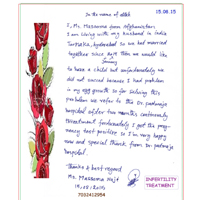 15.08.15
In the name of allah
I, Ms. Masooma from Afghanistan.
I am living with my husband in India
Turpaka, hyderabad so we had married
together since hajt then we would like
to have a child but unfortunately we
did not succed because I had problem
in my egg growth so for solving this
problem we refer to the Dr. padmaja
hospital after two months continously
treatment fortunately I got the preg-
nancy test positive so I'm very happy
now and special thanks from Dr. padmaja
hospital.
Thanks & best regard
Ms. Masooma Hajt
15.08.2015
7032412984
INFERTILITY
TREATMENT